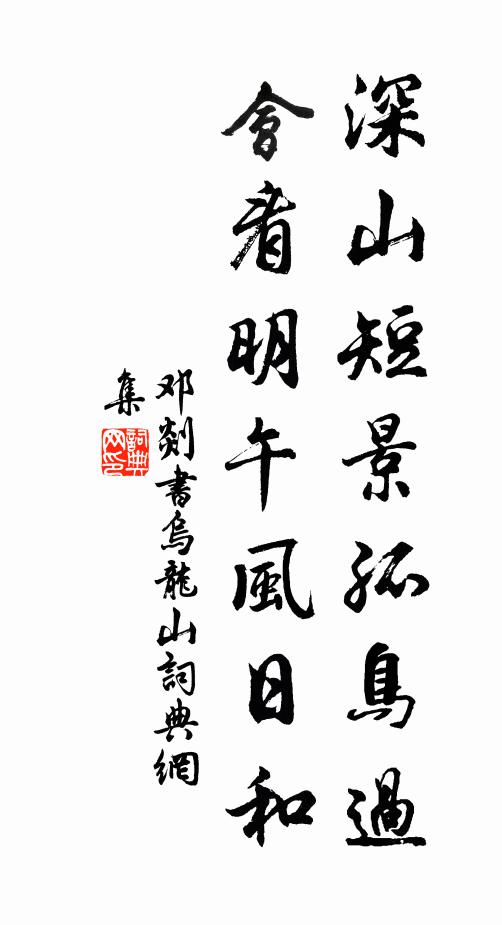 深山短景孤鳥過
會看明午風日和
邓剡書烏龍山詞典網
集
詞典
网印